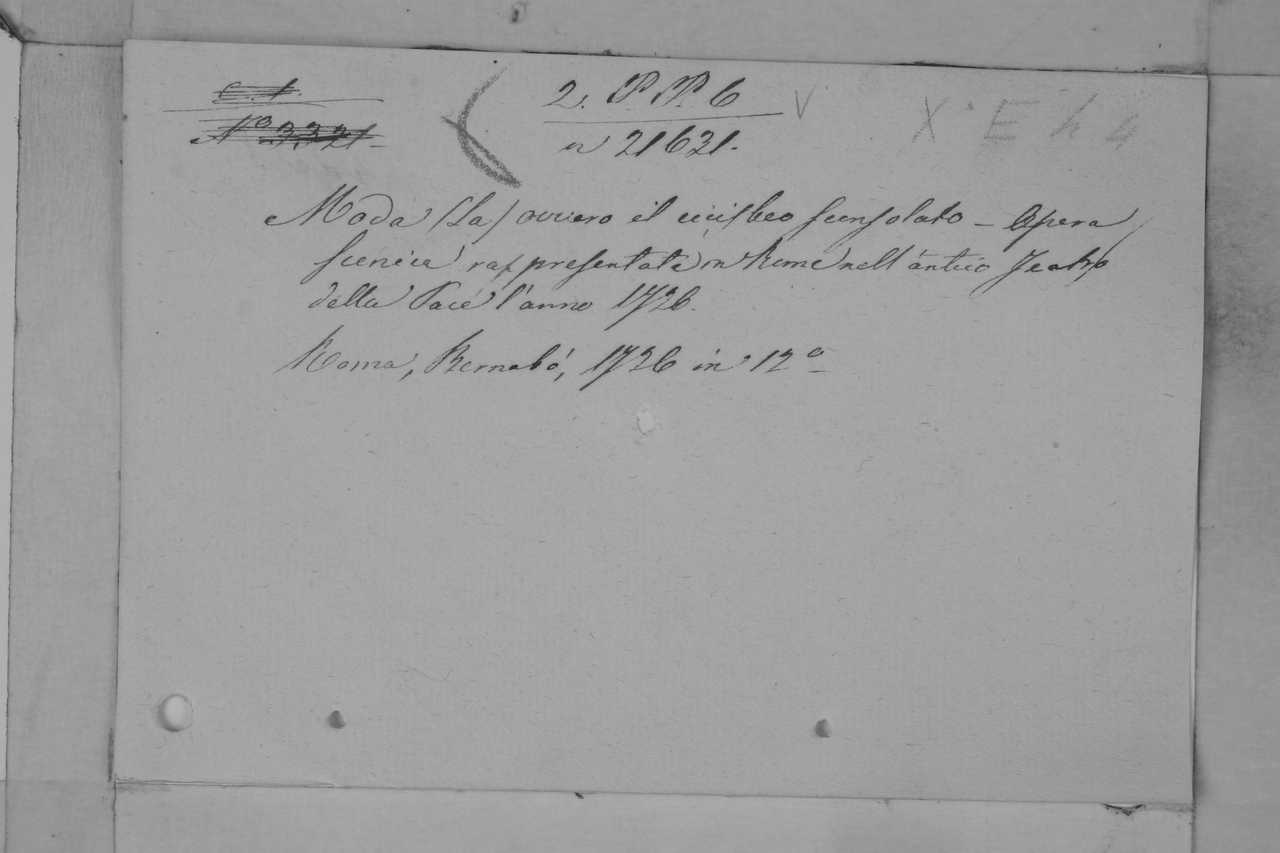 C. 1
2. PP. 6 V
X E h 4
Nº 3321.
n 21621.
Moda (La) ovvero il cicisbeo sconsolato - Opera
scenica rappresentata in Roma nell'antico Teatro
della Pace l'anno 1726.
Roma, Bernabó, 1726 in 12º